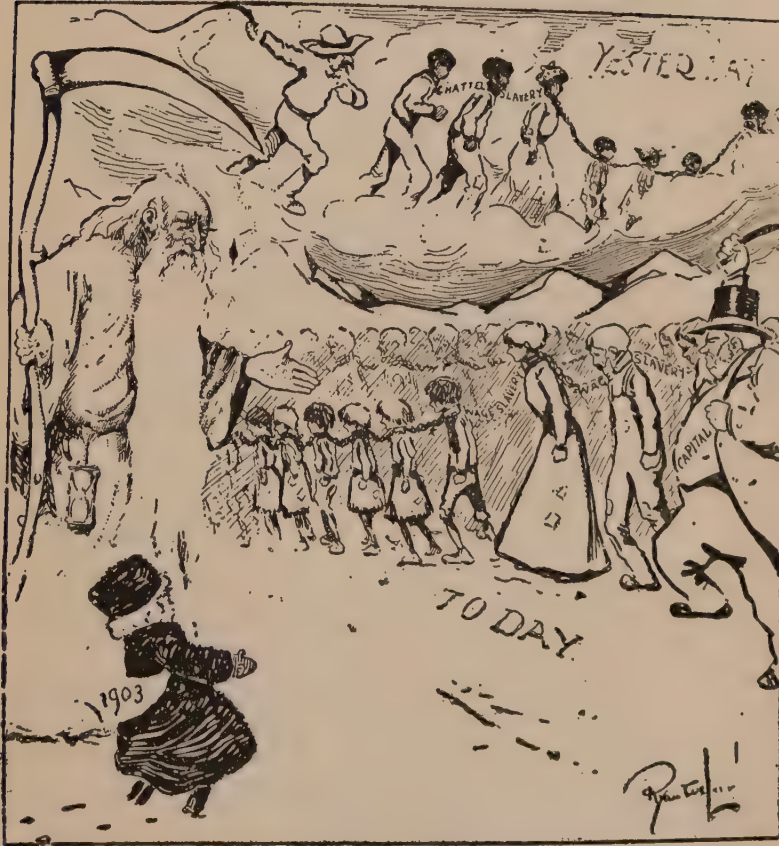 YESTERDAY
CHATTEL SLAVERY
WAGE SLAVERY
WAGE SLAVERY
CAPITAL
TODAY
1903